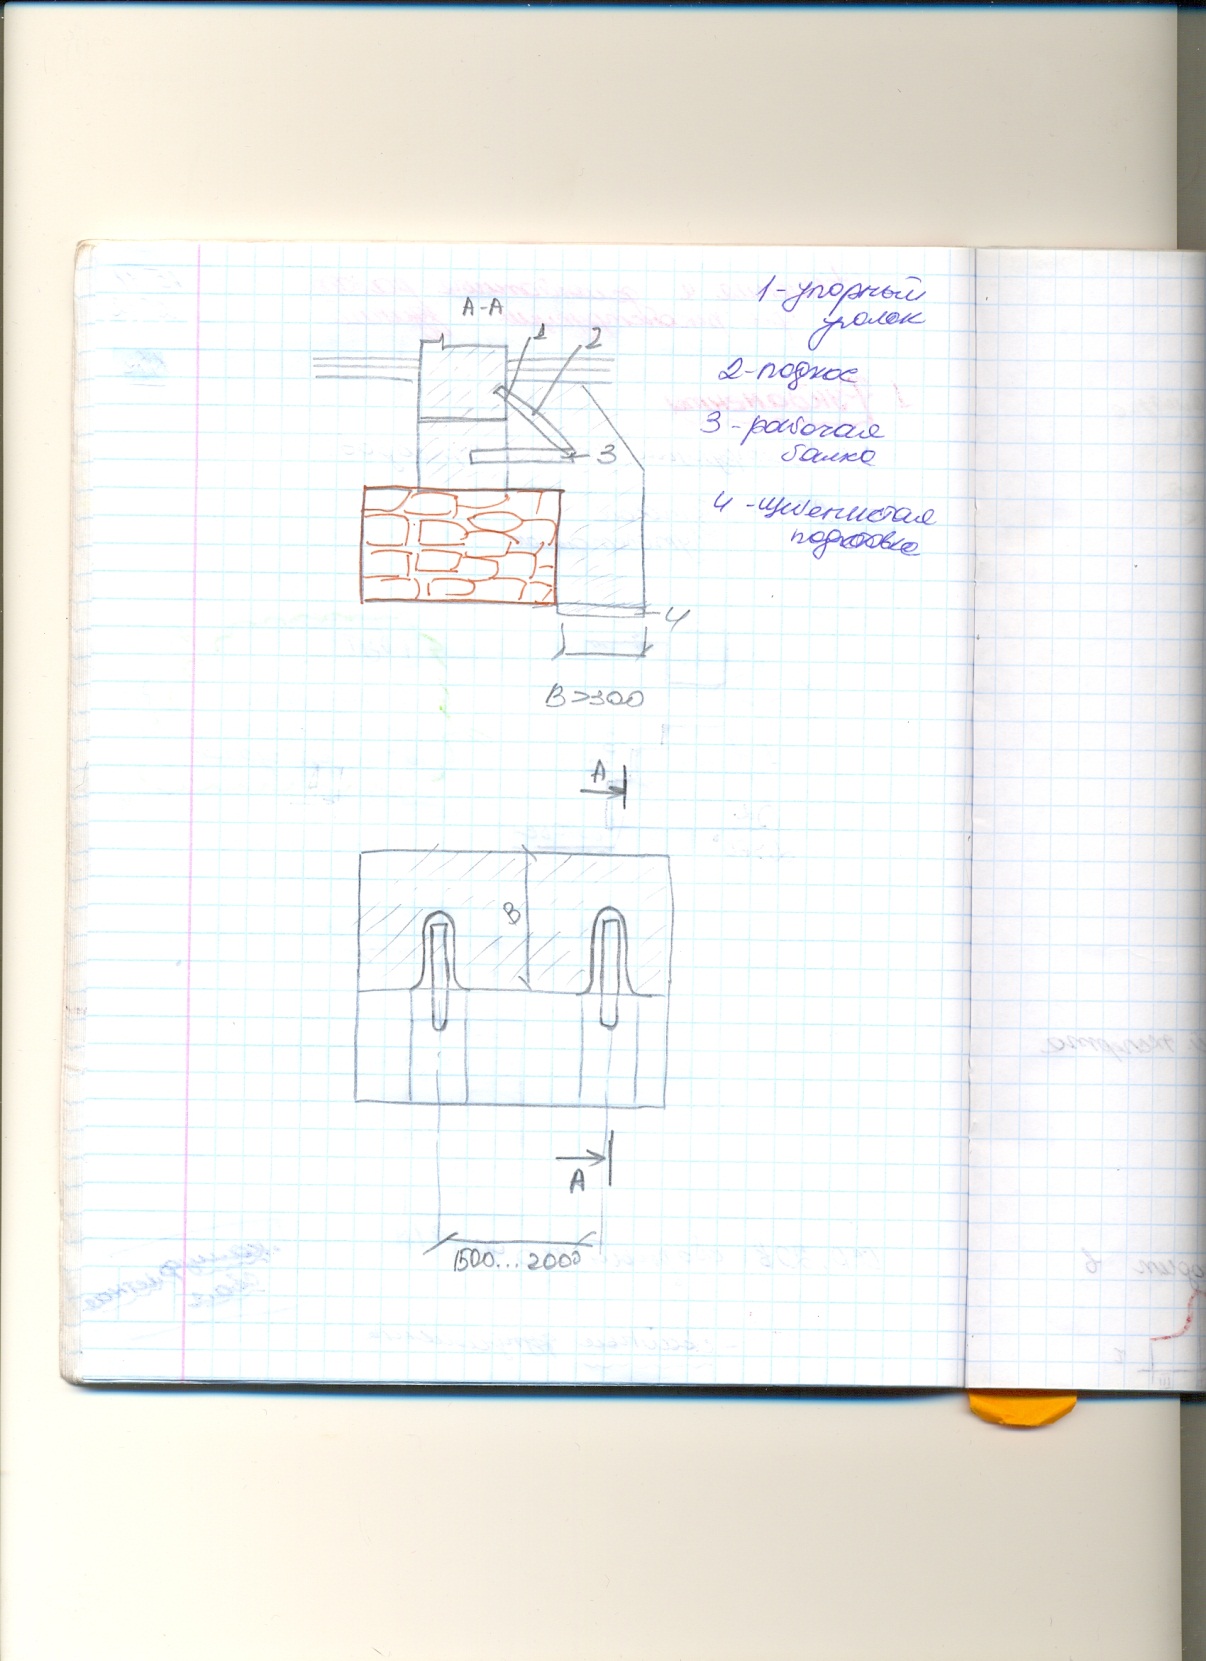 А-А
1
2
3
4
В>300
1-упорный
уголок
2-подкос
3-рабочая
балка
4-щебенистая
подготовка
А
В
А
1500...2000